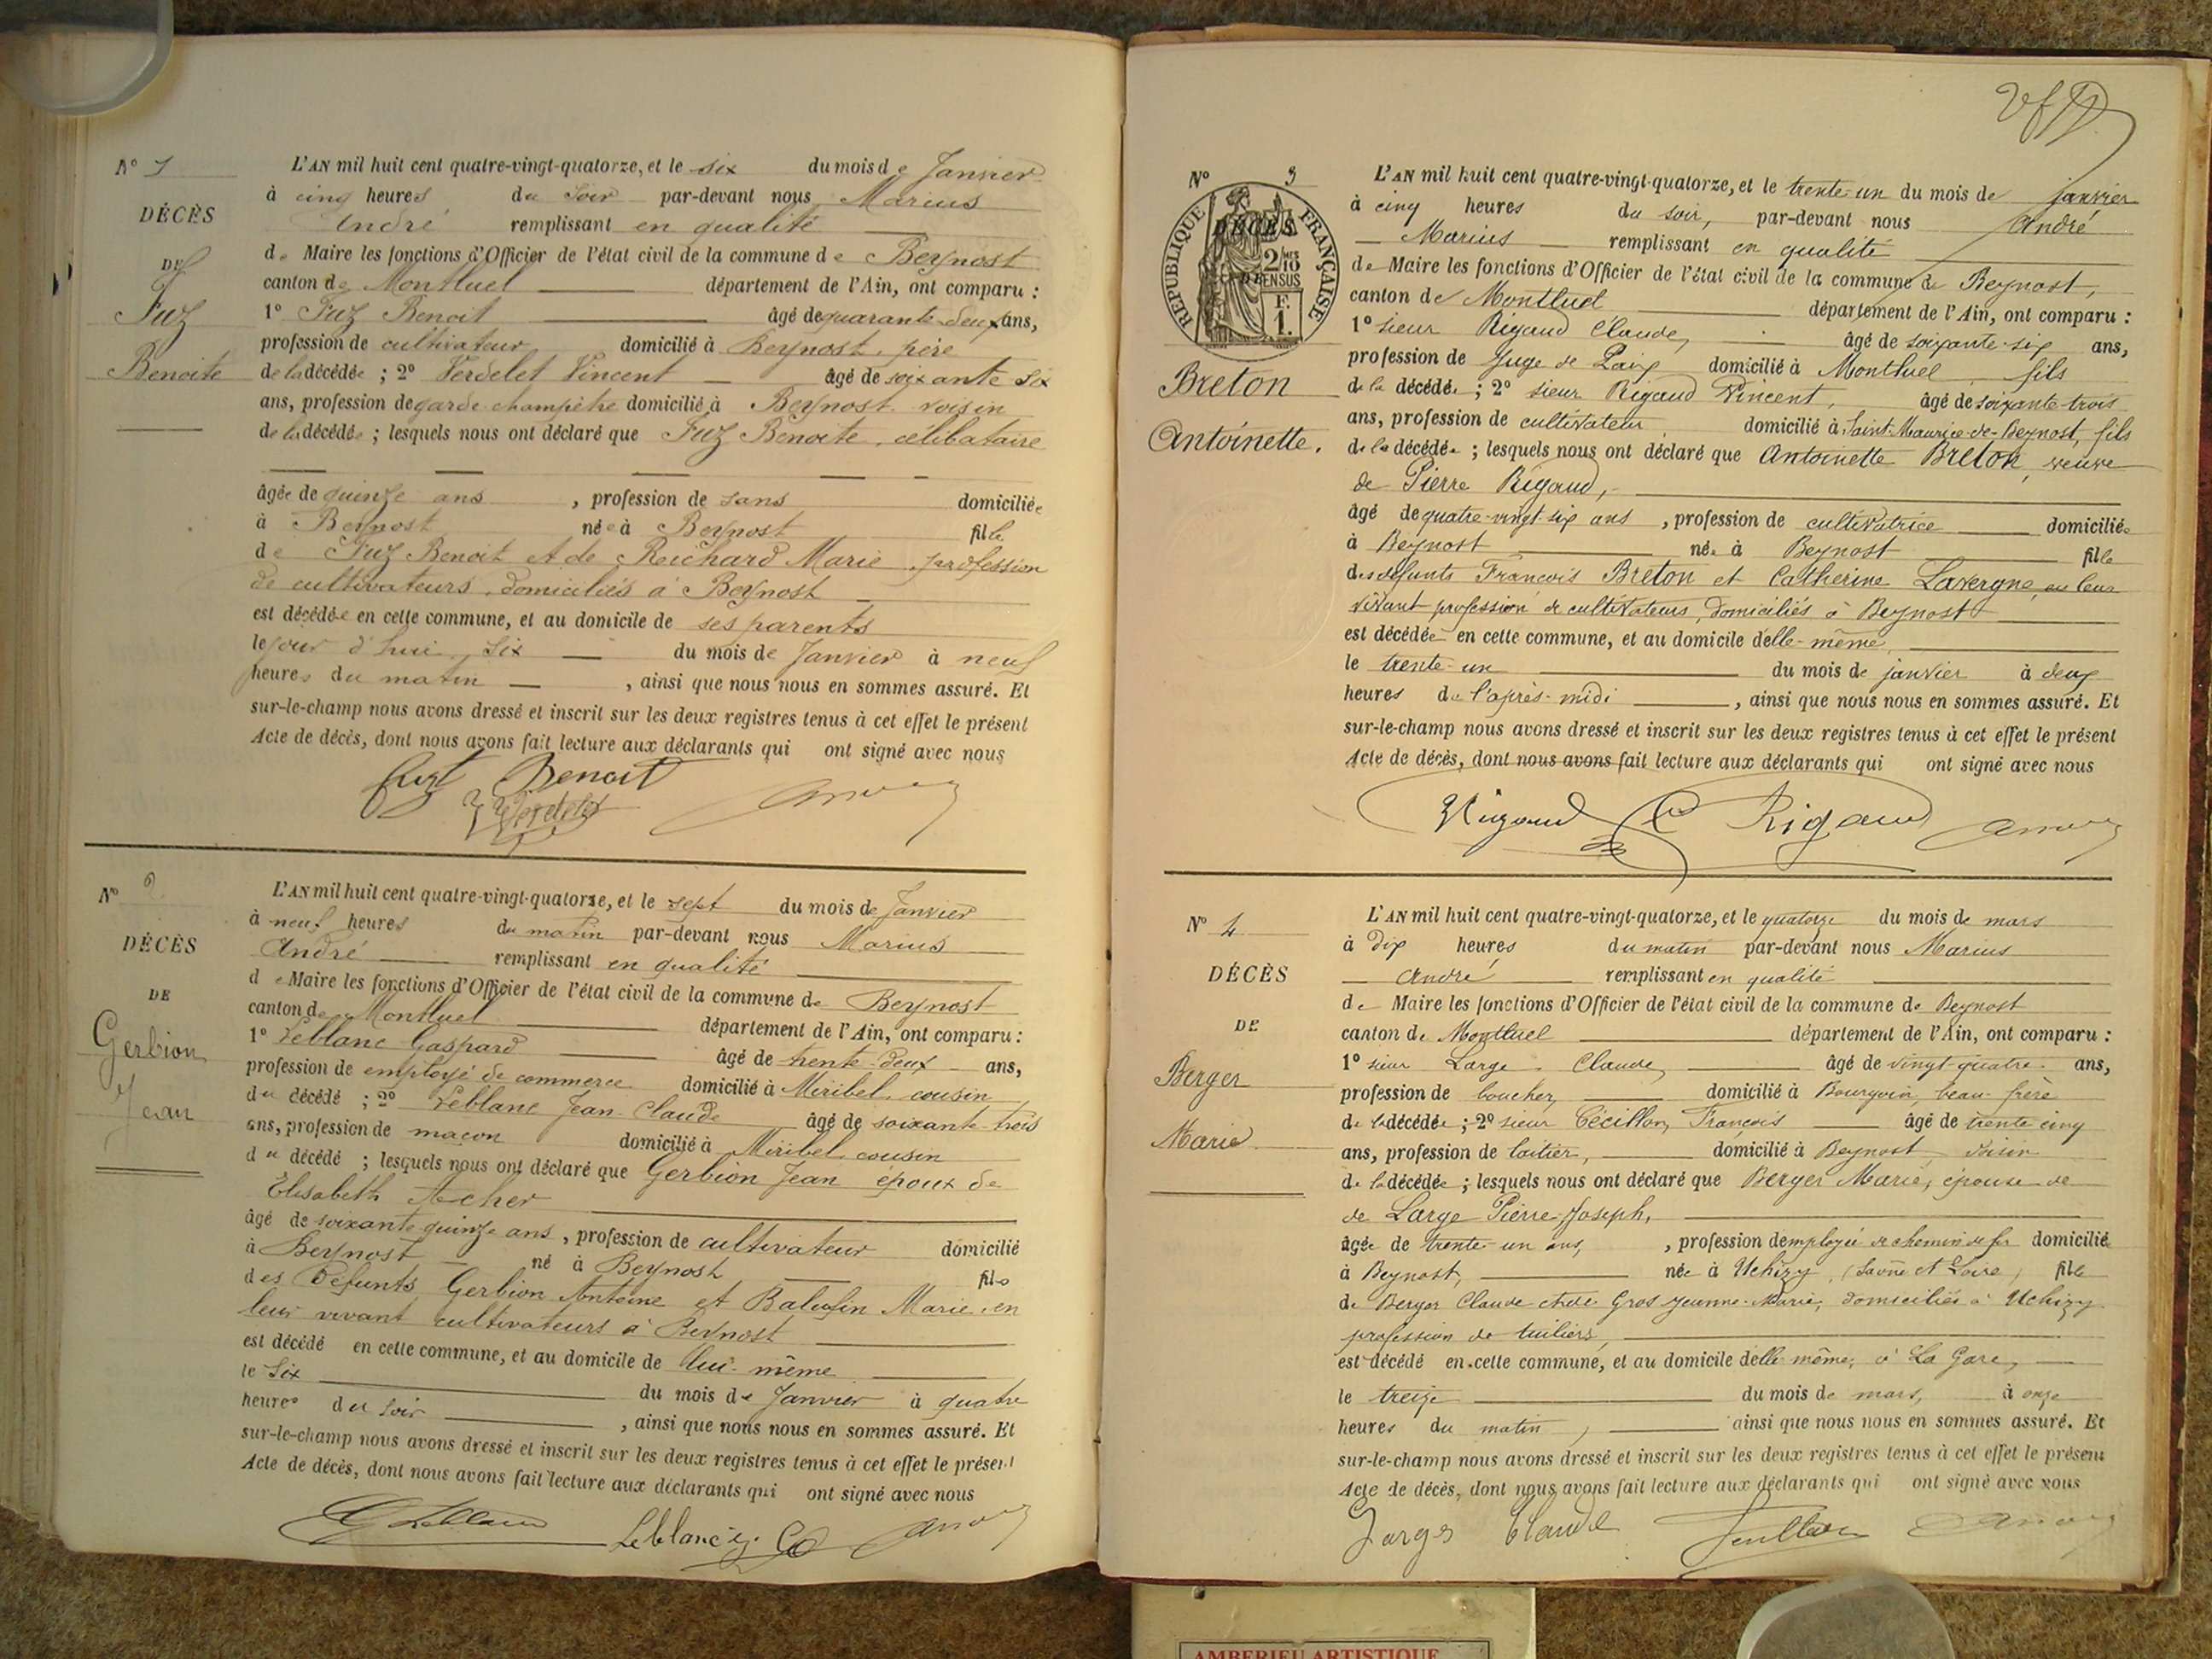 N° 1
DÉCÈS
DE
Fuz
Benoite
L'AN mil huit cent quatre-vingt-quatorze, et le six du mois de Janvier
à cinq heures du soir par-devant nous Marius
André remplissant en qualité
de Maire les fonctions d'Officier de l'état civil de la commune de Beynost
canton de Montluel département de l'Ain, ont comparu :
1° Fuz Benoit âgé de quarante-deux ans,
profession de cultivateur domicilié à Beynost, père
de la décédée ; 2° Verdelet Vincent âgé de soixante six
ans, profession de garde champêtre domicilié à Beynost voisin
de la décédée ; lesquels nous ont déclaré que Fuz Benoite, célibataire
âgée de quinze ans , profession de sans domiciliée
à Beynost née à Beynost fille
de Fuz Benoit et de Reichard Marie, profession
de cultivateurs, domiciliés à Beynost
est décédée en cette commune, et au domicile de ses parents
le jour d'hui six du mois de Janvier à neuf
heures du matin , ainsi que nous nous en sommes assuré. Et
sur-le-champ nous avons dressé et inscrit sur les deux registres tenus à cet effet le présent
Acte de décès, dont nous avons fait lecture aux déclarants qui ont signé avec nous
Fuz Benoit
Verdelet
N° 2
DÉCÈS
DE
Gerbion
Jean
L'AN mil huit cent quatre-vingt-quatorze, et le sept du mois de Janvier
à neuf heures du matin par-devant nous Marius
André remplissant en qualité
de Maire les fonctions d'Officier de l'état civil de la commune de Beynost
canton de Montluel département de l'Ain, ont comparu :
1° Leblanc Gaspard âgé de trente-deux ans,
profession de employé de commerce domicilié à Miribel, cousin
du décédé ; 2° Leblanc Jean-Claude âgé de soixante-trois
ans, profession de maçon domicilié à Miribel cousin
du décédé ; lesquels nous ont déclaré que Gerbion Jean époux de
Elisabeth Acher
âgé de soixante quinze ans , profession de cultivateur domicilié
à Beynost né à Beynost fils
des Défunts Gerbion Antoine et Balufin Marie, en
leur vivant cultivateurs à Beynost
est décédé en cette commune, et au domicile de lui-même
le six du mois de Janvier à quatre
heures du soir , ainsi que nous nous en sommes assuré. Et
sur-le-champ nous avons dressé et inscrit sur les deux registres tenus à cet effet le présent
Acte de décès, dont nous avons fait lecture aux déclarants qui ont signé avec nous
G Leblanc
Leblanc
N° 3
RÉPUBLIQUE FRANÇAISE
DÉCÈS
2/10
EN SUS
F.
1.
Breton
Antoinette.
L'AN mil huit cent quatre-vingt-quatorze, et le trente-un du mois de janvier
à cinq heures du soir, par-devant nous André
Marius remplissant en qualité
de Maire les fonctions d'Officier de l'état civil de la commune de Beynost,
canton de Montluel département de l'Ain, ont comparu :
1° sieur Rigaud Claude, âgé de soixante-six ans,
profession de Juge de Paix domicilié à Montluel fils
de la décédée ; 2° sieur Rigaud Vincent, âgé de soixante-trois
ans, profession de cultivateur domicilié à Saint-Maurice-de-Beynost, fils
de la décédée ; lesquels nous ont déclaré que Antoinette Breton, veuve
de Pierre Rigaud,
âgé de quatre-vingt-six ans , profession de cultivatrice domiciliée
à Beynost née à Beynost fille
des défunts François Breton et Catherine Lavergne, en leur
vivant profession de cultivateurs, domiciliés à Beynost
est décédée en cette commune, et au domicile d'elle-même,
le trente-un du mois de janvier à deux
heures de l'après-midi , ainsi que nous nous en sommes assuré. Et
sur-le-champ nous avons dressé et inscrit sur les deux registres tenus à cet effet le présent
Acte de décès, dont nous avons fait lecture aux déclarants qui ont signé avec nous
Rigaud C Rigaud
N° 4
DÉCÈS
DE
Berger
Marie
L'AN mil huit cent quatre-vingt-quatorze, et le quatorze du mois de mars
à dix heures du matin par-devant nous Marius
André remplissant en qualité
de Maire les fonctions d'Officier de l'état civil de la commune de Beynost
canton de Montluel département de l'Ain, ont comparu :
1° sieur Large Claude, âgé de vingt-quatre ans,
profession de boucher, domicilié à Bourgoin, beau-frère
de la décédée ; 2° sieur Cécillon, François âgé de trente cinq
ans, profession de laitier, domicilié à Beynost, voisin
de la décédée ; lesquels nous ont déclaré que Berger Marie, épouse de
de Large Pierre-Joseph,
âgée de trente-un ans, , profession d'employée de chemin de fer domiciliée
à Beynost, née à Uchizy, (Saône et Loire) fille
de Berger Claude et de Gros Jeanne-Marie, domiciliés à Uchizy
profession de tuiliers,
est décédé en cette commune, et au domicile d'elle-même, à La Gare,
le treize du mois de mars, à onze
heures du matin, ainsi que nous nous en sommes assuré. Et
sur-le-champ nous avons dressé et inscrit sur les deux registres tenus à cet effet le présent
Acte de décès, dont nous avons fait lecture aux déclarants qui ont signé avec nous
Large Claude
AMBERIEU ARTISTIQUE